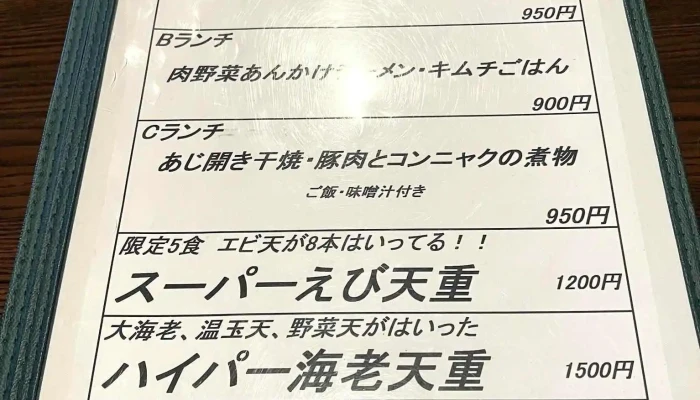 950円
Bランチ
肉野菜あんかけラーメン・キムチごはん
900円
Cランチ
あじ開き干焼・豚肉とコンニャクの煮物
ご飯・味噌汁付き
950円
限定5食 エビ天が8本はいってる！！
スーパーえび天重 1200円
大海老、温玉天、野菜天がはいった
ハイパー海老天重 1500円